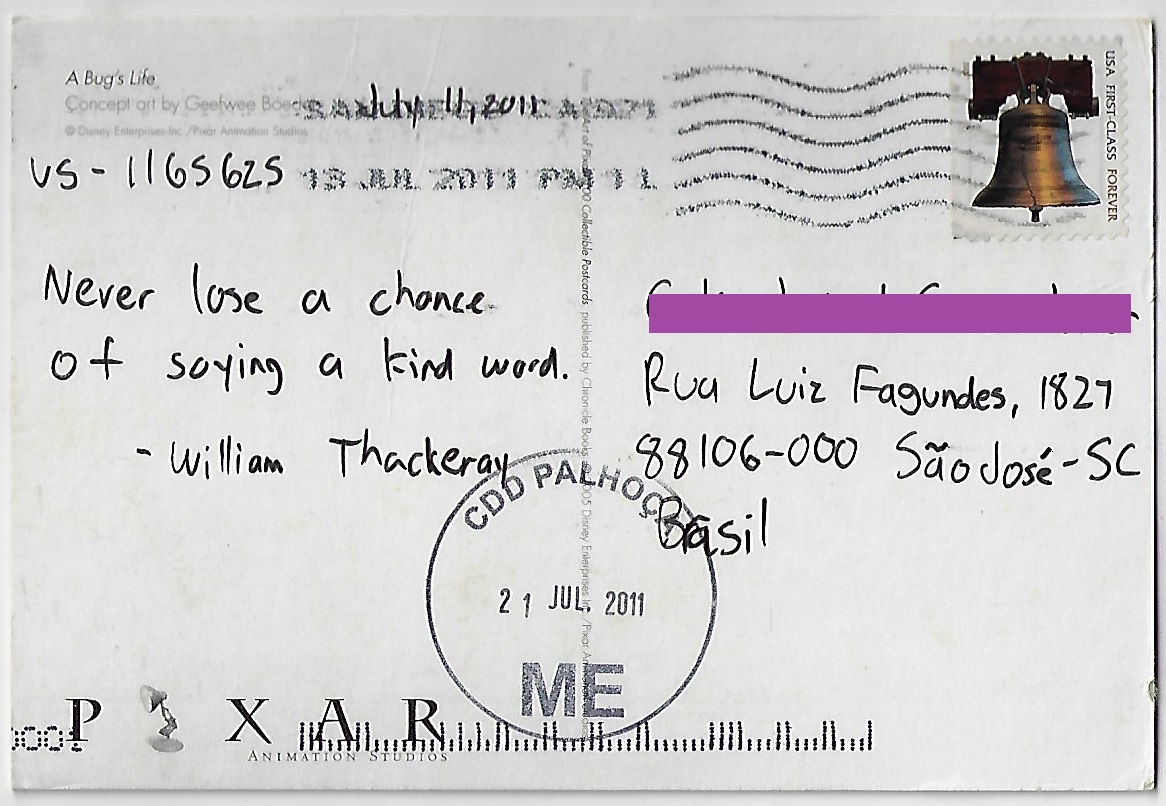 A Bug's Life
Concept art by Geefwee Boedoe
© Disney Enterprises Inc./Pixar Animation Studios
July 11, 2011
US - 1165625
13 JUL 2011 PM 11
USA FIRST-CLASS FOREVER
Never lose a chance
of saying a kind word.
- William Thackeray
Art of Pixar 100 Collectible Postcards, published by Chronicle Books. 2005 Disney Enterprises Inc./Pixar Animation
Rua Luiz Fagundes, 1827
88106-000 São José-SC
Brasil
CDD PALHOÇA
21 JUL. 2011
ME
PIXAR
ANIMATION STUDIOS